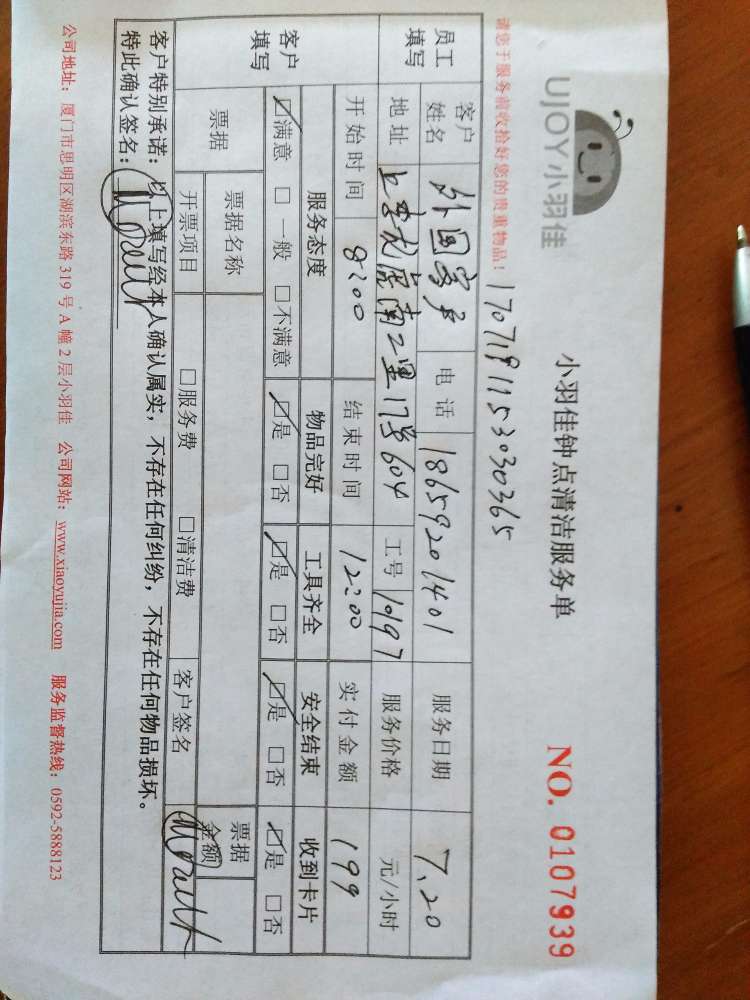 UJOY小羽佳
小羽佳钟点清洁服务单
NO. 0107939
请您于服务前收拾好您的贵重物品！
17071911530303​65
员工填写 客户姓名 外国客户 电话 18659201401 服务日期 7.20
地址 南二里17号604 工号 10197 服务价格 元/小时
开始时间 8:00 结束时间 12:00 实付金额 199
客户填写 服务态度 物品完好 工具齐全 安全结束 收到卡片
☑满意 □一般 □不满意 ☑是 □否 ☑是 □否 ☑是 □否 ☑是 □否
票据 票据名称 票据金额
开票项目 □服务费 □清洁费 客户签名
客户特别承诺：以上填写经本人确认属实，不存在任何纠纷，不存在任何物品损坏。
特此确认签名：
公司地址：厦门市思明区湖滨东路 319 号 A 幢 2 层小羽佳 公司网站：www.xiaoyujia.com 服务监督热线：0592-5888123